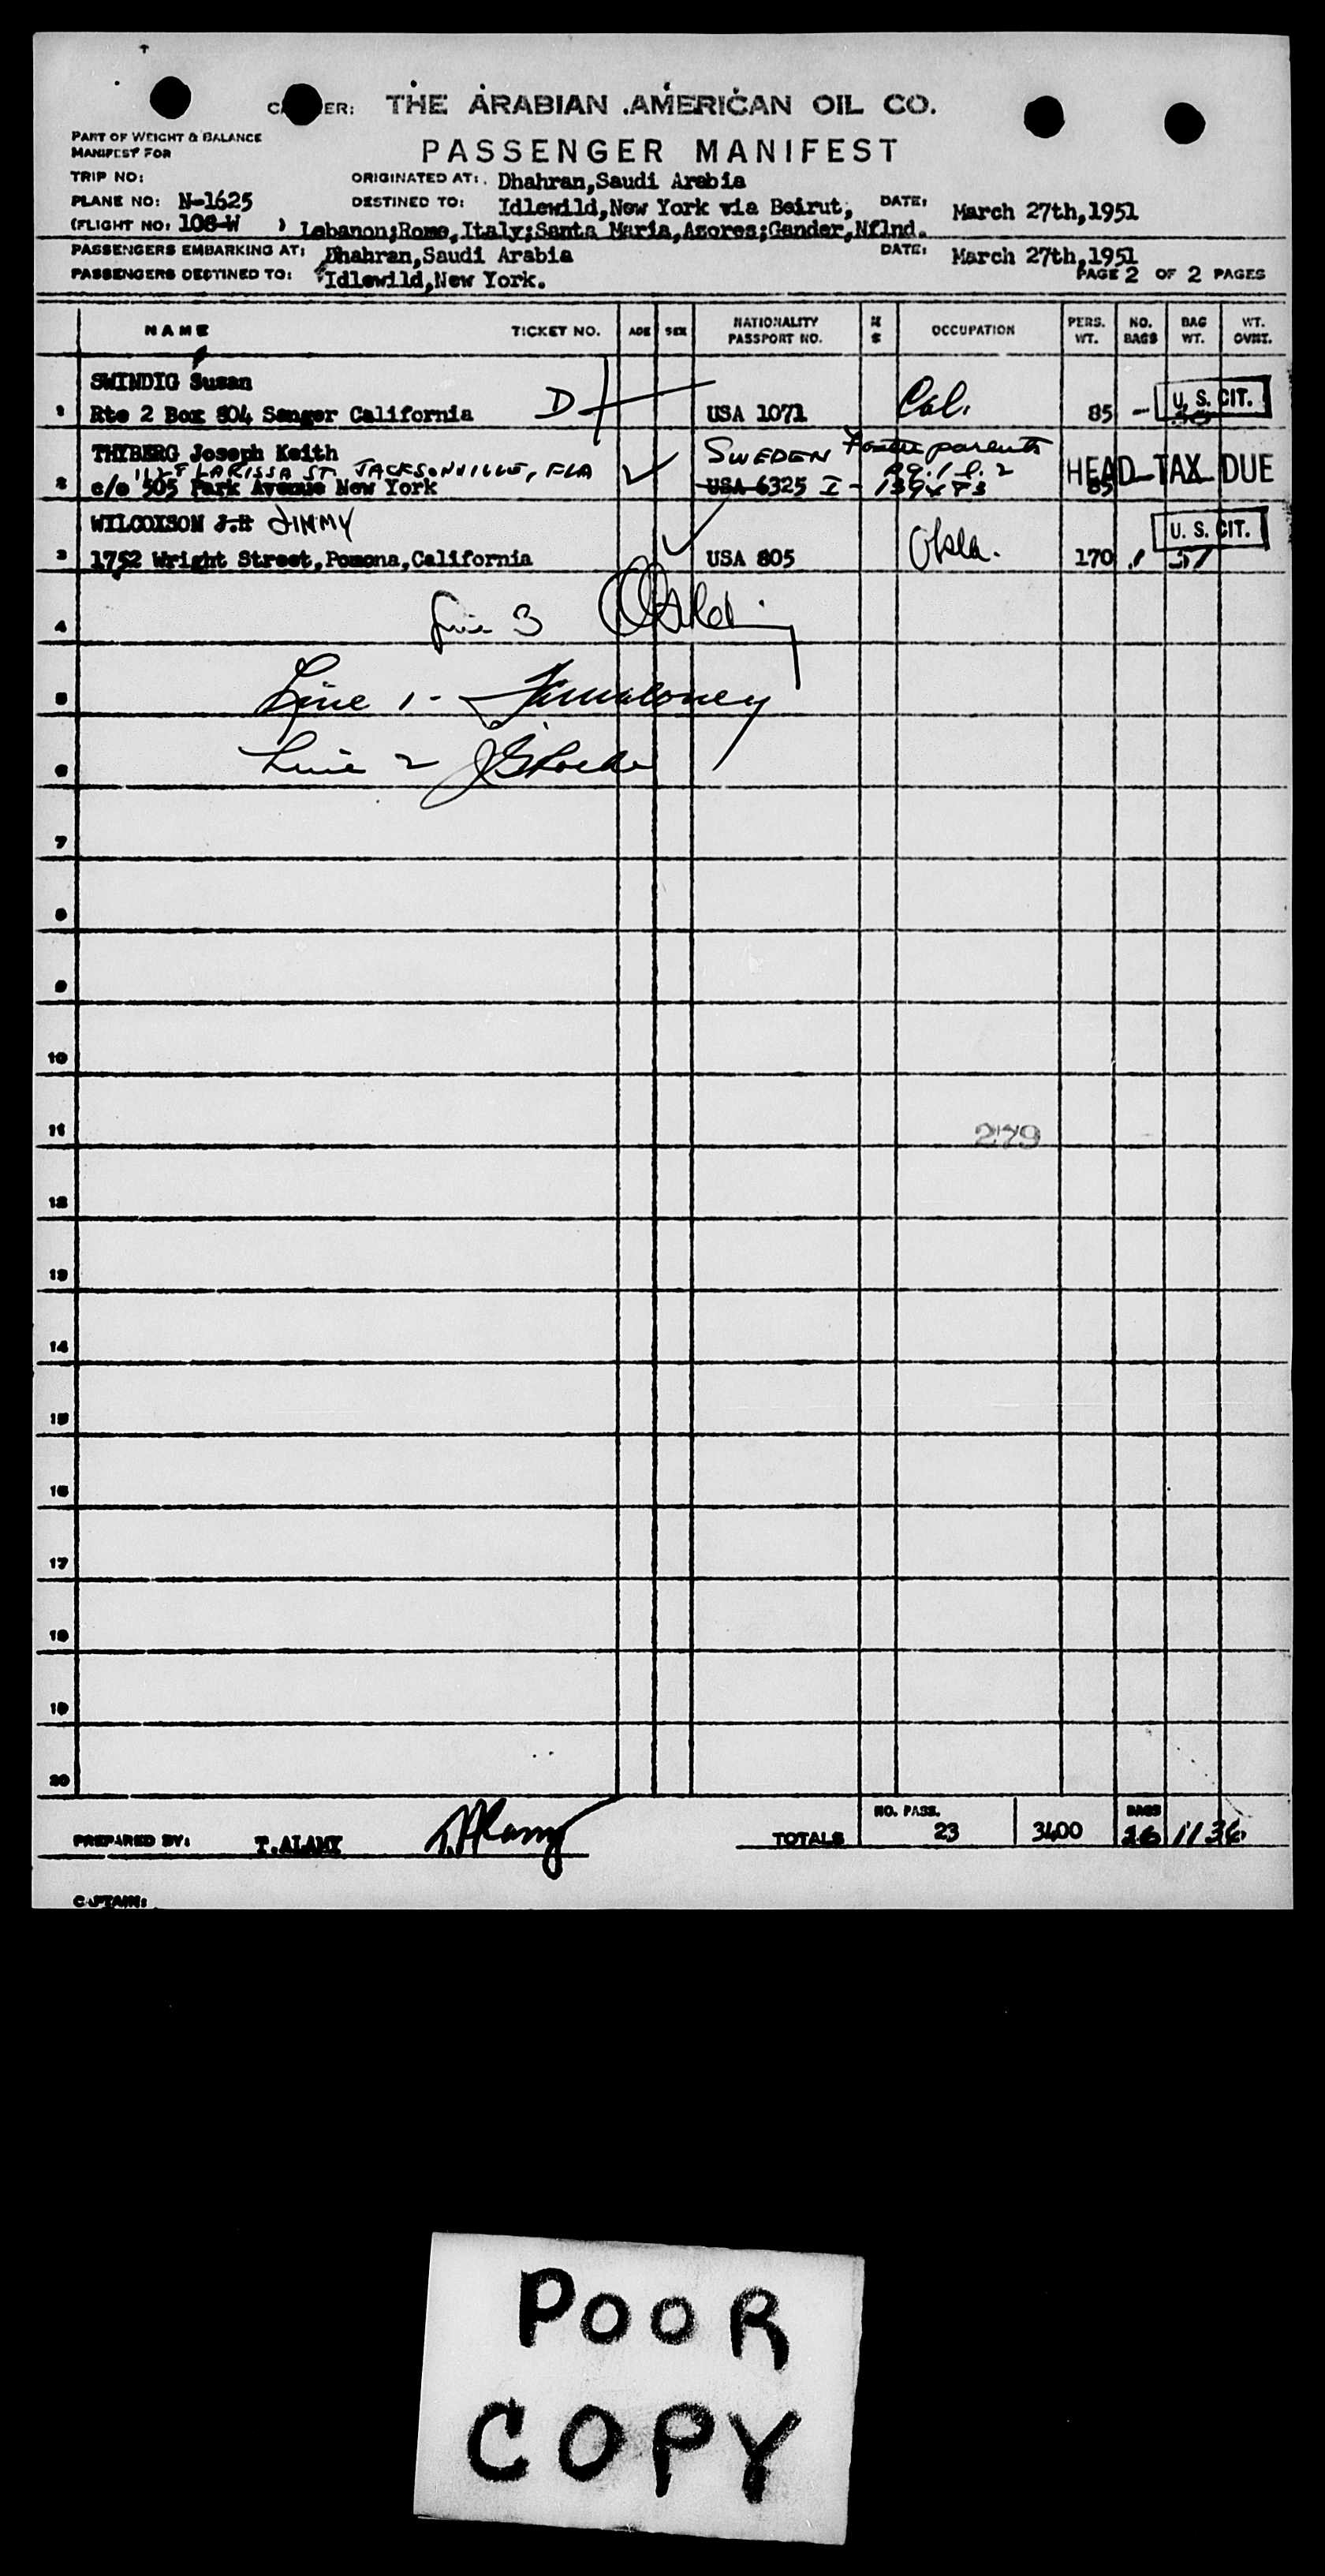 CARRIER: THE ARABIAN AMERICAN OIL CO.
PART OF WEIGHT & BALANCE
MANIFEST FOR
PASSENGER MANIFEST
TRIP NO:
ORIGINATED AT: Dhahran,Saudi Arabia
PLANE NO: N-1625
DESTINED TO: Idlewild,New York via Beirut, DATE: March 27th,1951
(FLIGHT NO: 108-W ) Lebanon;Rome,Italy;Santa Maria,Azores;Gander,Nflnd.
PASSENGERS EMBARKING AT: Dhahran,Saudi Arabia DATE: March 27th,1951
PASSENGERS DESTINED TO: Idlewild,New York. PAGE 2 OF 2 PAGES
NAME TICKET NO. AGE SEX NATIONALITY PASSPORT NO. M S OCCUPATION PERS. WT. NO. BAGS BAG WT. WT. OVWT.
SWINDIG Susan
1 Rte 2 Box 804 Sanger California D USA 1071 Cal. 85 - U. S. CIT.
THYBERG Joseph Keith SWEDEN Foster parents
LARISSA ST. JACKSONVILLE, FLA pg. 1 l. 2 HEAD TAX DUE
2 c/o 505 Park Avenue New York USA 6325 I - 85
WILCOXSON J.H JIMMY U. S. CIT.
3 1752 Wright Street,Pomona,California USA 805 Okla. 170 1 51
4 Line 3
5 Line 1 -
6 Line 2
7
8
9
10
11 279
12
13
14
15
16
17
18
19
20
PREPARED BY: T.ALAMY TOTALS NO. PASS. 23 3400 BAGS 26 1136
CAPTAIN:
POOR
COPY